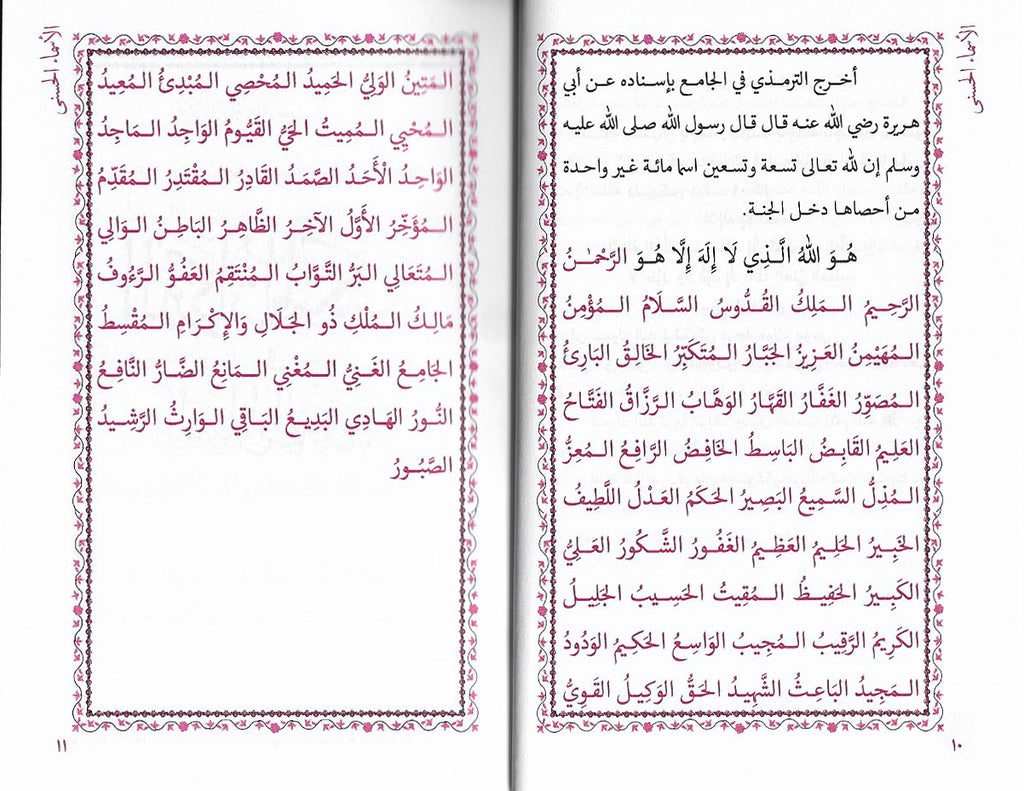 الأسماء الحسنى
أخرج الترمذي في الجامع بإسناده عن أبي
هريرة رضي الله عنه قال قال رسول الله صلى الله عليه
وسلم إن لله تعالى تسعة وتسعين اسما مائة غير واحدة
من أحصاها دخل الجنة.
هُوَ اللهُ الَّذِي لَا إِلَهَ إِلَّا هُوَ الرَّحْمٰنُ
الرَّحِيمُ المَلِكُ القُدُّوسُ السَّلَامُ المُؤْمِنُ
المُهَيْمِنُ العَزِيزُ الجَبَّارُ المُتَكَبِّرُ الخَالِقُ البَارِئُ
المُصَوِّرُ الغَفَّارُ القَهَّارُ الوَهَّابُ الرَّزَّاقُ الفَتَّاحُ
العَلِيمُ القَابِضُ البَاسِطُ الخَافِضُ الرَّافِعُ المُعِزُّ
المُذِلُّ السَّمِيعُ البَصِيرُ الحَكَمُ العَدْلُ اللَّطِيفُ
الخَبِيرُ الحَلِيمُ العَظِيمُ الغَفُورُ الشَّكُورُ العَلِيُّ
الكَبِيرُ الحَفِيظُ المُقِيتُ الحَسِيبُ الجَلِيلُ
الكَرِيمُ الرَّقِيبُ المُجِيبُ الوَاسِعُ الحَكِيمُ الوَدُودُ
المَجِيدُ البَاعِثُ الشَّهِيدُ الحَقُّ الوَكِيلُ القَوِيُّ
١٠
الأسماء الحسنى
المَتِينُ الوَلِيُّ الحَمِيدُ المُحْصِي المُبْدِئُ المُعِيدُ
المُحْيِي المُمِيتُ الحَيُّ القَيُّومُ الوَاجِدُ المَاجِدُ
الوَاحِدُ الْأَحَدُ الصَّمَدُ القَادِرُ المُقْتَدِرُ المُقَدِّمُ
المُؤَخِّرُ الأَوَّلُ الآخِرُ الظَّاهِرُ البَاطِنُ الوَالِي
المُتَعَالِي البَرُّ التَّوَّابُ المُنْتَقِمُ العَفُوُّ الرَّءُوفُ
مَالِكُ المُلْكِ ذُو الجَلَالِ وَالإِكْرَامِ المُقْسِطُ
الجَامِعُ الغَنِيُّ المُغْنِي المَانِعُ الضَّارُّ النَّافِعُ
النُّورُ الهَادِي البَدِيعُ البَاقِي الوَارِثُ الرَّشِيدُ
الصَّبُورُ
١١